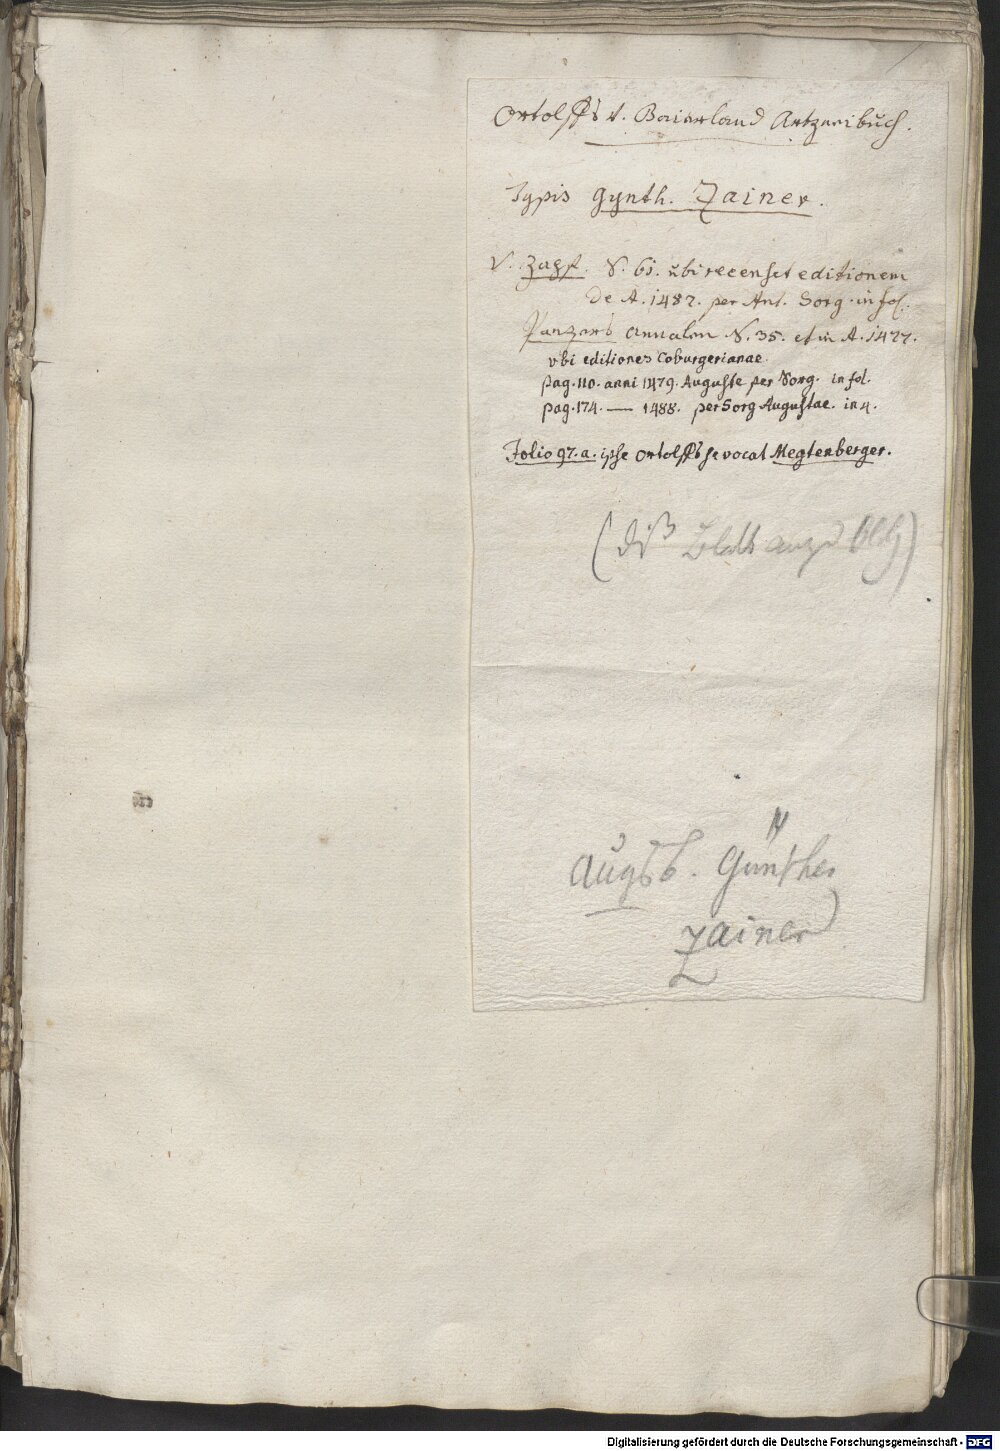 Ortolffs v. Baierland Artzneibuch.
Typis Gynth. Zainer.
V. Zapf. S. 61. ubi recenset editionem
de A. 1482. per Ant. Sorg. in fol.
Panzers Annalen S. 35. et in A. 1477.
vbi editiones Coburgerianae.
pag. 110. anni 1479. Auguste per Sorg. in fol.
pag. 174. — 1488. per Sorg Augustae. in 4.
Folio 97. a. ipse Ortolffs se vocat Megtenberger.
(diß Blatt
Augsb. Günther
Zainer
Digitalisierung gefördert durch die Deutsche Forschungsgemeinschaft - DFG